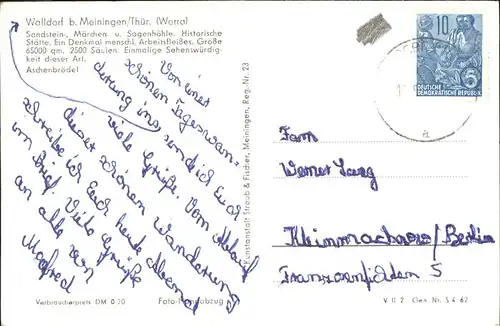 Walldorf b. Meiningen/Thür. (Werra)
Sandstein-, Märchen u. Sagenhöhle. Historische
Stätte. Ein Denkmal menschl. Arbeitsfleißes. Größe
65000 qm. 2500 Säulen. Einmalige Sehenswürdig-
keit dieser Art.
Aschenbrödel
Von einer
schönen Tageswan-
derung ins sende ich Euch
viele Grüße. Vom Ablauf
dieser schönen Wanderung
schreibe ich Euch heute Abend
im Brief. Viele Grüße
an alle von
Manfred
Verbraucherpreis DM 0,20
Foto-Handabzug
Kunstanstalt Straub & Fischer, Meiningen, Reg.-Nr. 23
10
DEUTSCHE
DEMOKRATISCHE REPUBLIK
5
a
Fam
Werner
Kleinmachnow/Berlin
5
V 11 2 Gen. Nr. S 4 62